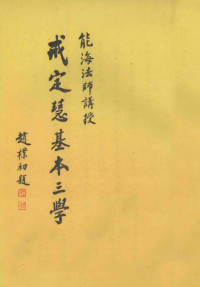 能海法師講授
戒定慧基本三學
趙樸初題